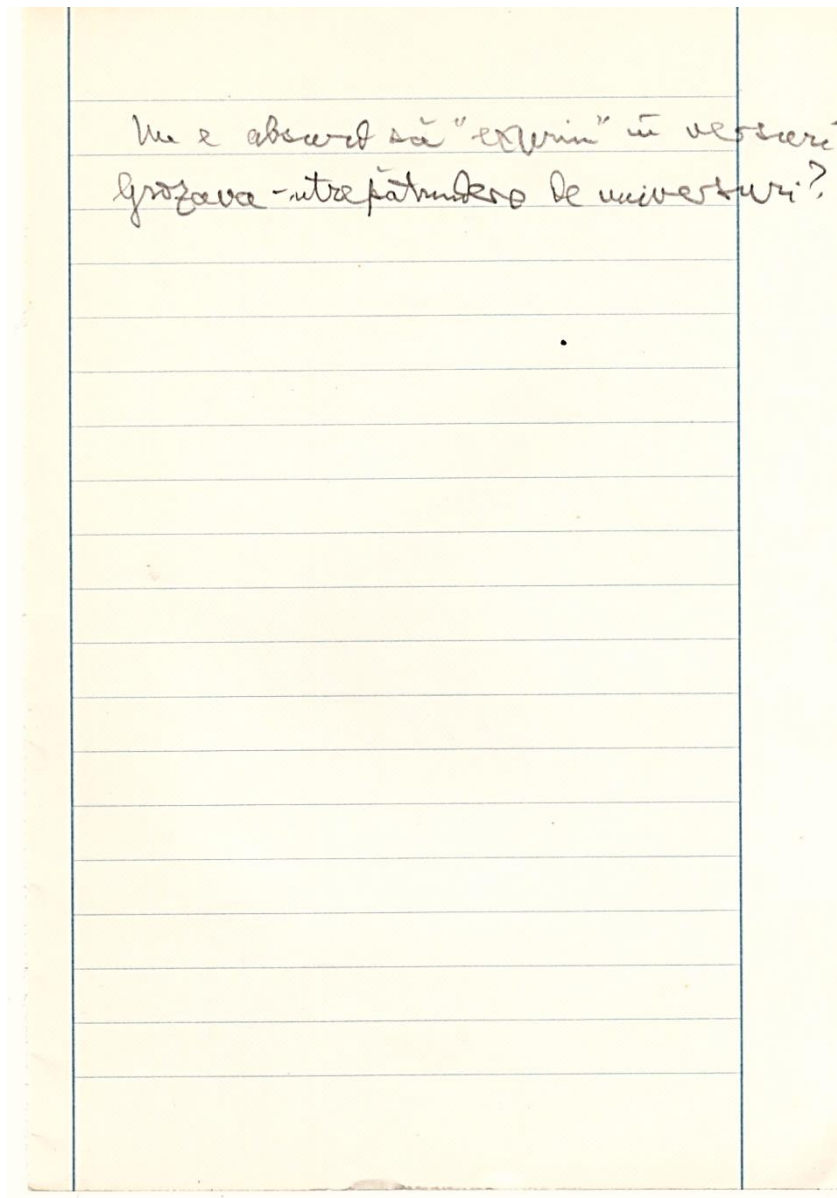 Nu e absurd să "exprim" în versuri
Grozava -ntrepătrundere de universuri?